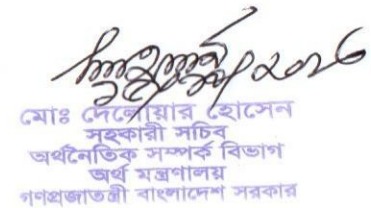 মোঃ দেলোয়ার হোসেন
সহকারী সচিব
অর্থনৈতিক সম্পর্ক বিভাগ
অর্থ মন্ত্রণালয়
গণপ্রজাতন্ত্রী বাংলাদেশ সরকার